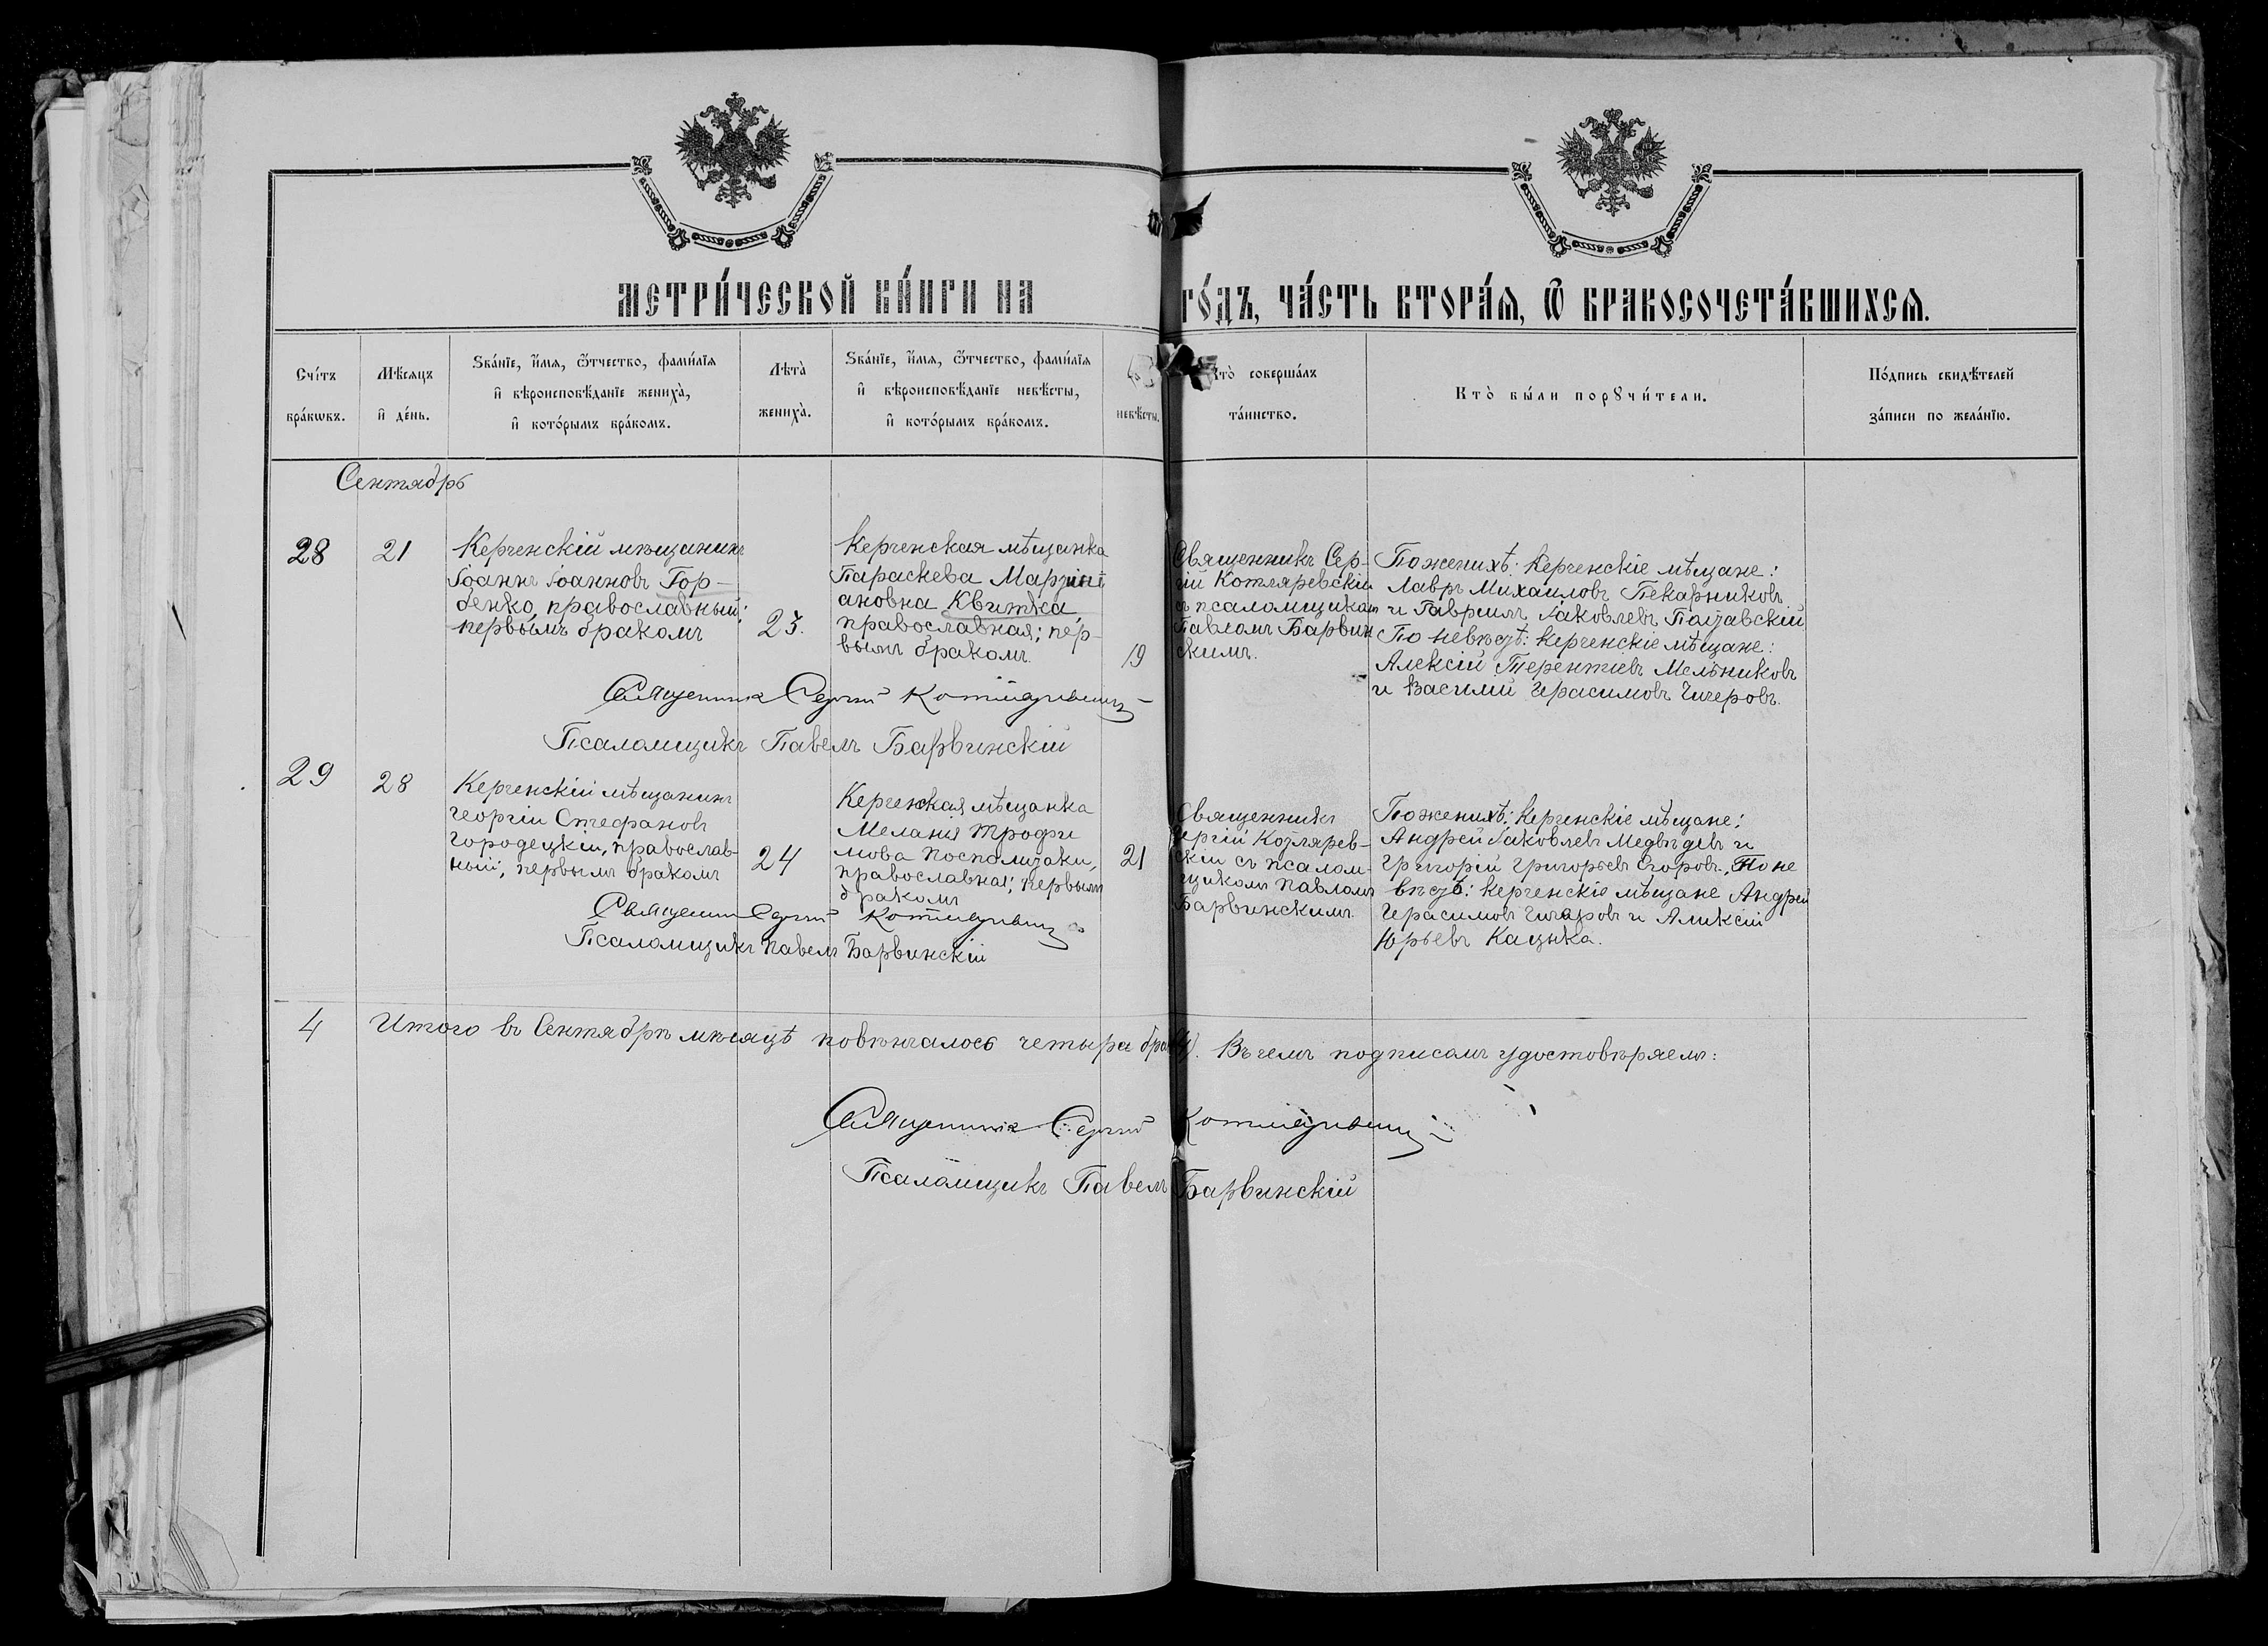 МЕТРИ́ЧЕСКОЙ КНИ́ГИ НА ГО́ДЪ, ЧА́СТЬ ВТОРА́Я, Ѿ БРАКОСОЧЕТА́ВШИХСЯ.
Сче́тъ
бра́кѡвъ.
Мѣ́сяцъ
и҆ де́нь.
Ѕва́нїе, и҆́мя, ѻ҆́тчество, фами́лїя
и҆ вѣроисповѣ́данїе жениха̀,
и҆ кото́рымъ бра́комъ.
Лѣта̀
жениха̀.
Ѕва́нїе, и҆́мя, ѻ҆́тчество, фами́лїя
и҆ вѣроисповѣ́данїе невѣ́сты,
и҆ кото́рымъ бра́комъ.
невѣ́сты.
Кто̀ соверша́лъ
та́инство.
Кто̀ бы́ли порꙋчи́тели.
По́дпись свидѣ́телей
за́писи по жела́нїю.
Сентябрь
28
21
Керченскій мѣщанинъ
Іоаннъ Іоанновъ Гор-
бенко, православный;
первымъ бракомъ
23.
Керченская мѣщанка
Параскева
ановна Квитка,
православная; пер-
вымъ бракомъ.
19
Священникъ Сер-
гій Котляревскій
съ псаломщикомъ
Павломъ Барвин
скимъ.
По женихѣ: Керченскіе мѣщане:
Лавръ Михаиловъ Пекарниковъ
и Гавріилъ Іаковлевъ Полтавскій
По невѣстѣ: Керченскіе мѣщане:
Алексій Терентіевъ Мельниковъ
и Василій Герасимовъ Чичеровъ.
Священникъ Сергій Котляревскій
Псаломщикъ Павелъ Барвинскій
29
28
Керченскій мѣщанинъ
Георгій Стефановъ
Городецкій, православ-
ный; первымъ бракомъ
24
Керченская мѣщанка
Меланія Трофи
мова Посполитаки,
православная; первымъ
бракомъ
21
Священникъ
Сергій Котлярев-
скій съ псалом-
щикомъ Павломъ
Барвинскимъ.
По женихѣ: Керченскіе мѣщане:
Андрей Іаковлевъ Медвѣдевъ и
Григорій Григорьевъ Егоровъ. По не
вѣстѣ: Керченскіе мѣщане Андрей
Герасимовъ Чичеровъ и Алексій
Юрьевъ Кацыка.
Священникъ Сергій Котляревскій
Псаломщикъ Павелъ Барвинскій
4
Итого въ Сентябрѣ мѣсяцѣ повѣнчалось четыре брака (4). Въ чемъ подписомъ удостовѣряемъ:
Священникъ Сергій Котляревскій
Псаломщикъ Павелъ Барвинскій